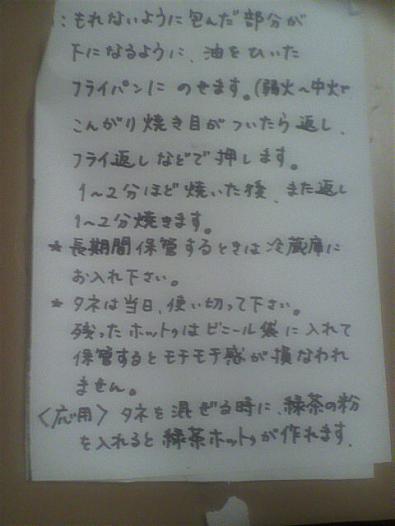 ：もれないように包んだ部分が
下になるように、油をひいた
フライパンにのせます。(弱火～中火で
こんがり焼き目がついたら返し、
フライ返しなどで押します。
1～2分ほど焼いた後、また返し
1～2分焼きます。
* 長期間保管するときは冷蔵庫に
お入れ下さい。
* タネは当日、使い切って下さい。
残ったホットクはビニール袋に入れて
保管するとモチモチ感が損なわれ
ません。
〈応用〉タネを混ぜる時に、緑茶の粉
を入れると緑茶ホットクが作れます。